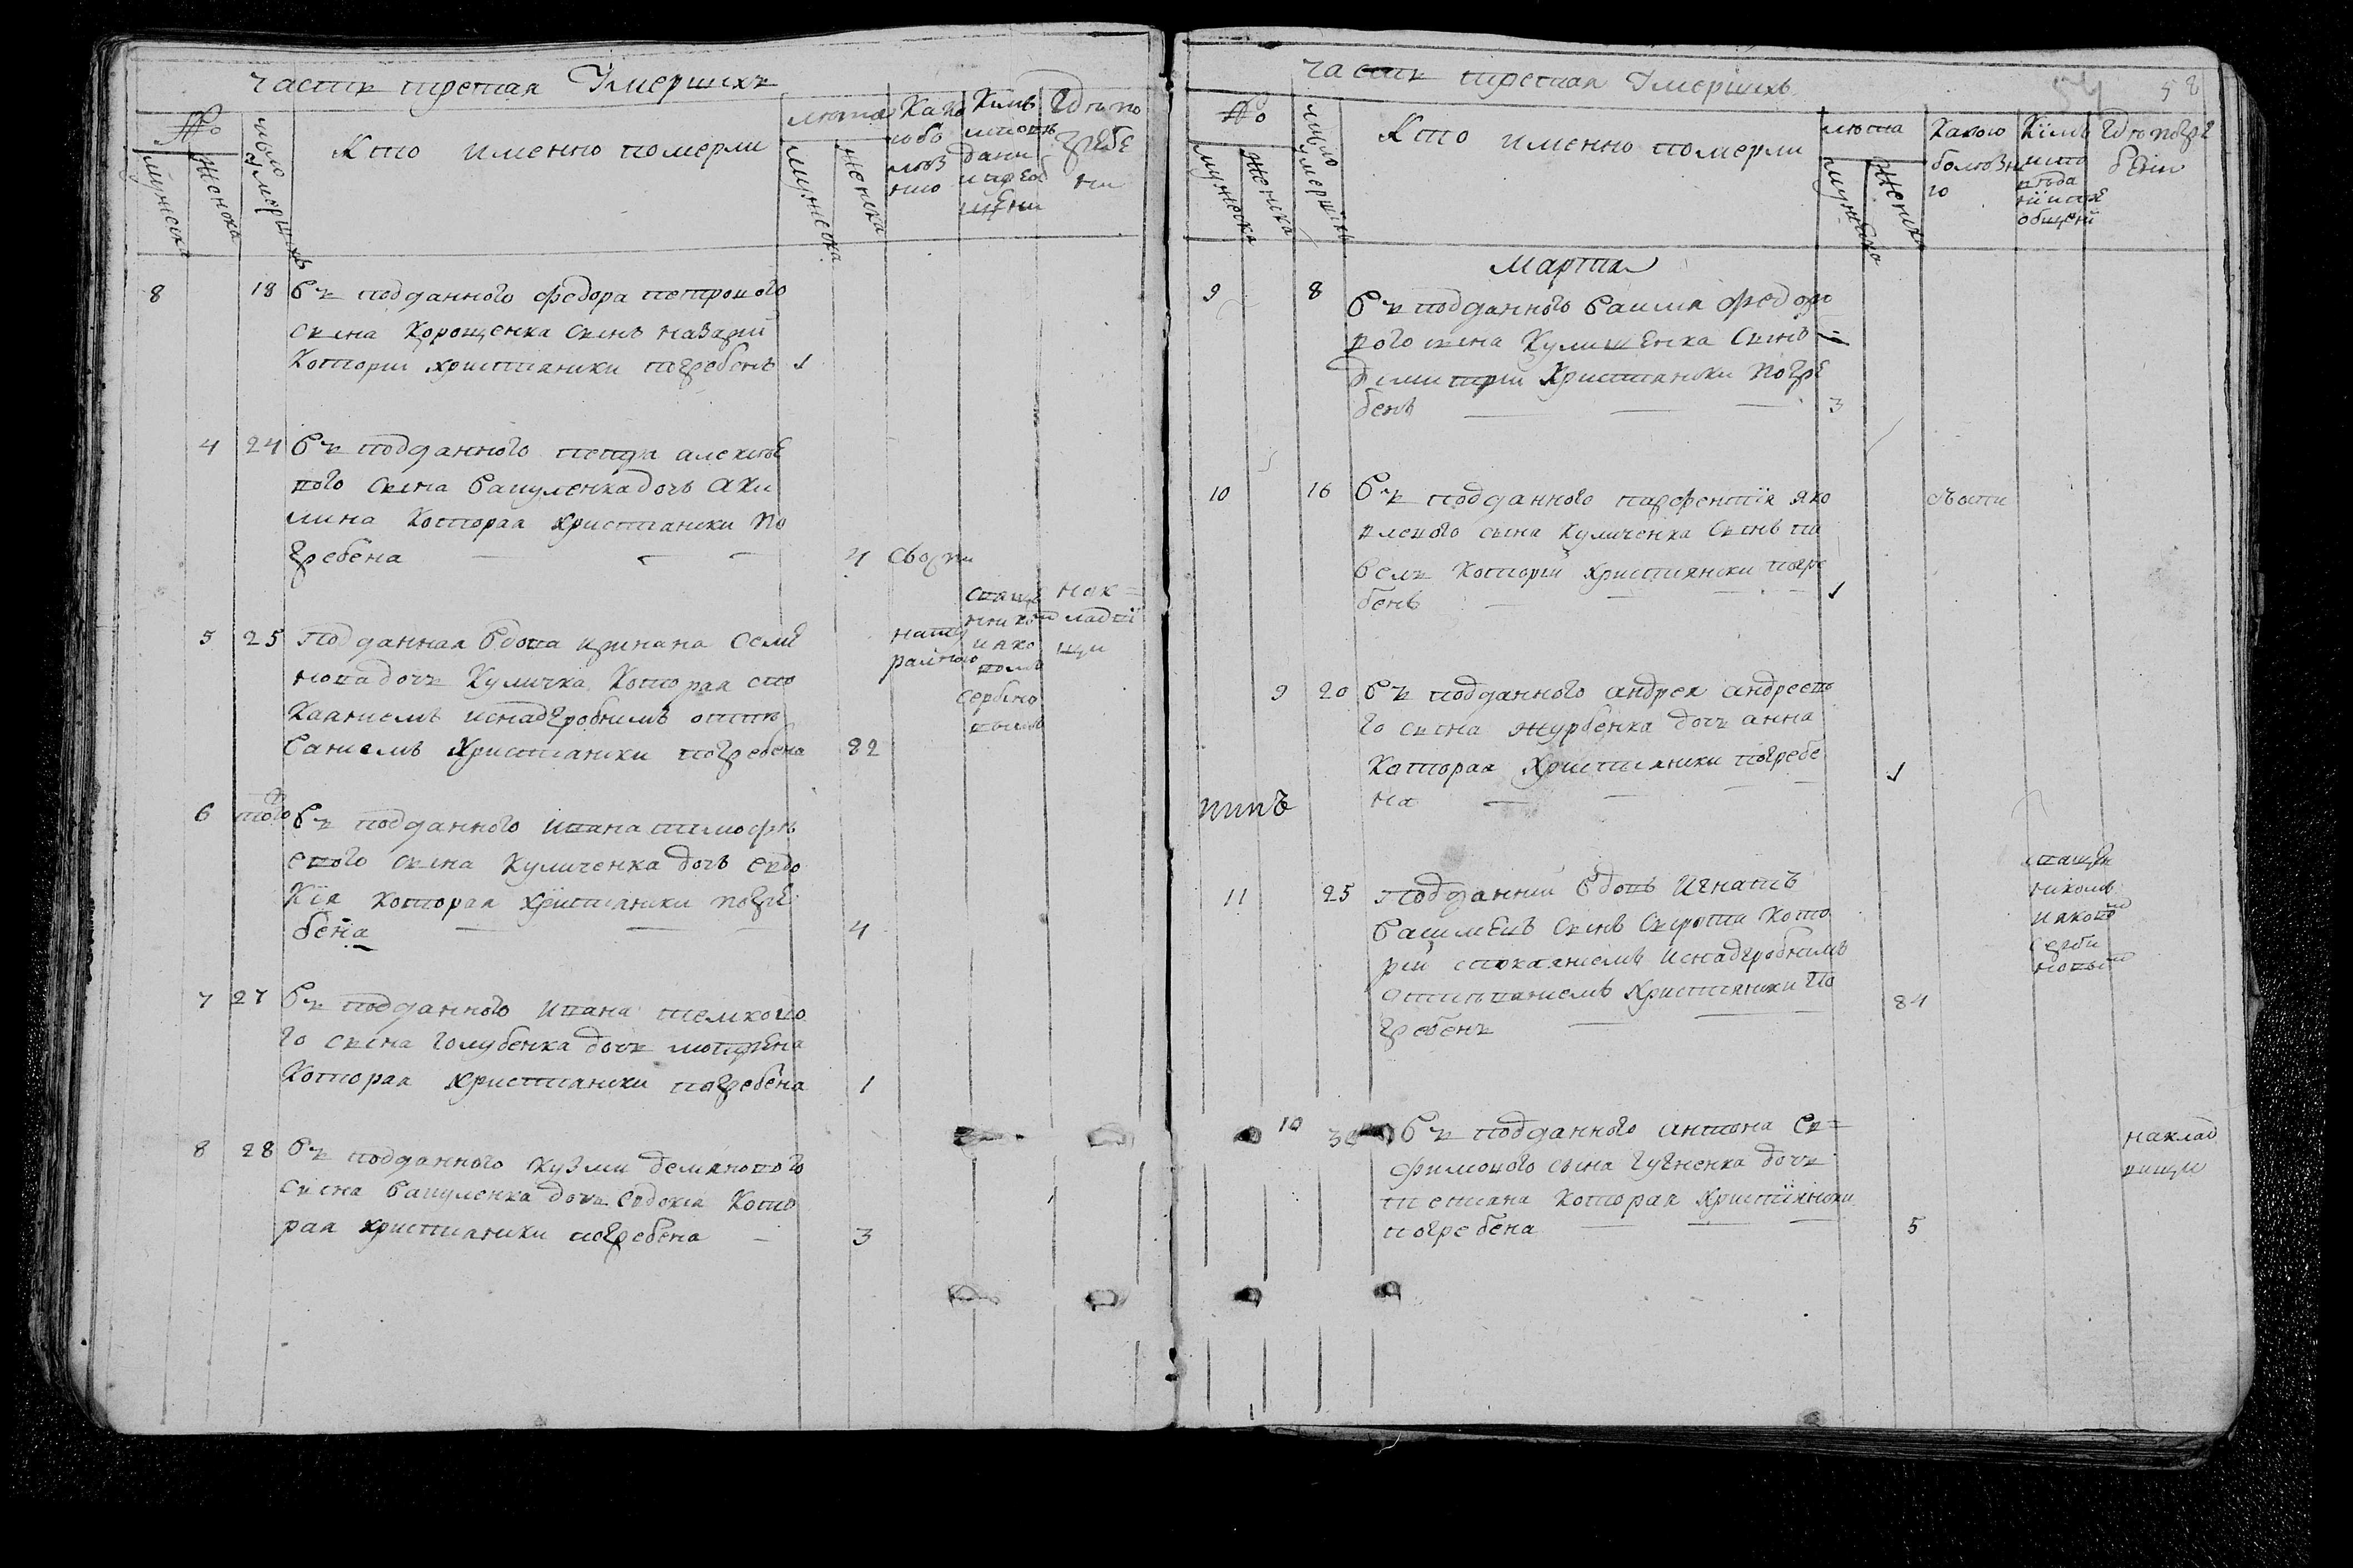 часть третая Умершихъ
№
мужеска
женска
число
умершихъ
Кто именно померли
лѣта
мужеска
женска
Како
го бо
лѣз
нію
Кимъ
Гдѣ по
гребе
ни
8 18 Въ подданного федора петрового
сына Корощенка сынъ назарій
Которій христиански погребенъ 1
4 24 Въ подданного петра алексѣе
вого сына Вацуленка дочь аки
лина Которая христиански по
гребена 4 Своспи
5 25 Подданная вдова ирина Семе
нова дочь Куличка Которая спо
Каяниемъ инадгробнимъ отпѣ
ваниемъ Христиански погребена 82
нату
ралною
свяще
ннико
иако
вомъ
сербино
вымъ
нак=
ладби
щи
6 того Въ подданного ивана тимофѣ
евого сына Куличенка дочь евдо
кія Которая христиански погре
бена 4
7 27 Въ подданного ивана
го сына голубенка дочь мотрона
Которая христиански погребена 1
8 28 Въ подданного кузми демянового
сына Вацуленка дочь евдокия Кото
рая христиански погребена 3
часть третая Умершихъ
54 58
№
мужеска
женска
число
умершихъ
Кто именно померли
лѣта
мужеска
женска
Какою
болѣзни
ю
Кімъ
испо
вѣда
ни и прі
общени
Гдѣ погре
бени
Марта
9 8 Въ подданного Василя федоро
вого сына Кулишенка Сынъ
димитрій Христиански погре
бенъ 3
10 16 Въ подданного парфентія яко
влевого сына Куличенка Сынъ па
велъ Которій християнски погре
бенъ 1
9 20 Въ подданного андрея андреево
го сына журбенка дочь анна
Которая Християнски погребе
на 1
11 25 Подданній вдовъ Игнатъ
Василиевъ сынъ Сирота Кото
рій спокаяниемъ инадгробнимъ
отпѣваниемъ Християнски по
гребенъ 84
священ
никомъ
иаково
серби
новим
10 30 Въ подданного антона Ев=
фимового сына гугненка дочь
тетяна Которая Христіянски
погребена 5
наклад
вищи